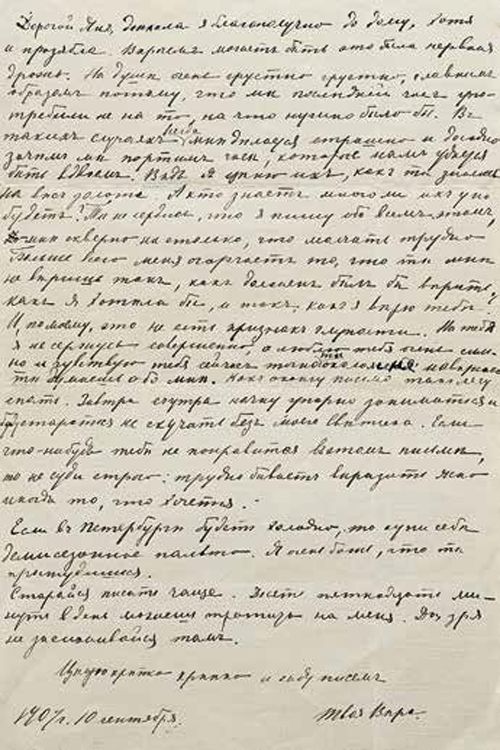 Дорогой Яня, доехала я благополучно до дому, хотя
и прозябла. Впрочемъ можетъ быть это была нервная
дрожь. На душѣ очень грустно грустно, главнымъ
образомъ потому, что мы послѣдній часъ упо-
требили не на то, на что нужно было бы. Въ
такихъ случаяхъ всегда мнѣ дѣлается страшно и досадно
зачѣмъ мы портимъ часы, которые намъ удается
быть вдвоемъ. Вѣдь я цѣню ихъ, какъ ты знаешь
на вѣсъ золота. А кто знаетъ много ли ихъ у насъ
будетъ? Ты не сердись, что я пишу обо всемъ этомъ,
мнѣ скверно на столько, что молчать трудно
Больше всего меня огорчаетъ то, что ты мнѣ
не вѣришь такъ, какъ долженъ былъ бы вѣрить,
какъ я хотѣла бы, и такъ, какъ я вѣрю тебѣ.
И помоему, это не есть признакъ глупости. На тебя
я не сержусь совершенно, а люблю тебя очень силь-
но и чувствую тебя сейчасъ около навѣрное
ты думаешь обо мнѣ. Какъ окончу письмо такъ лягу
спать. Завтра съ утра начну упорно заниматься и
постараюсь не скучать безъ моего Если
что-нибудь тебѣ не понравится въ этомъ письмѣ,
то не суди строго: трудно бываетъ выразить ясно
иногда то, что хочется. -
Если въ Петербургѣ будетъ холодно, то купи себѣ
демисезонное пальто. Я очень боюсь, что ты
простудишься.
Старайся писать чаще. Хоть пятнадцать ми-
нутъ въ день можешь тратить на меня. Да зря
не засиживайся тамъ.
Цѣлую крѣпко крѣпко и жду писемъ
1907г. 10 сентября. Твоя Вѣра.